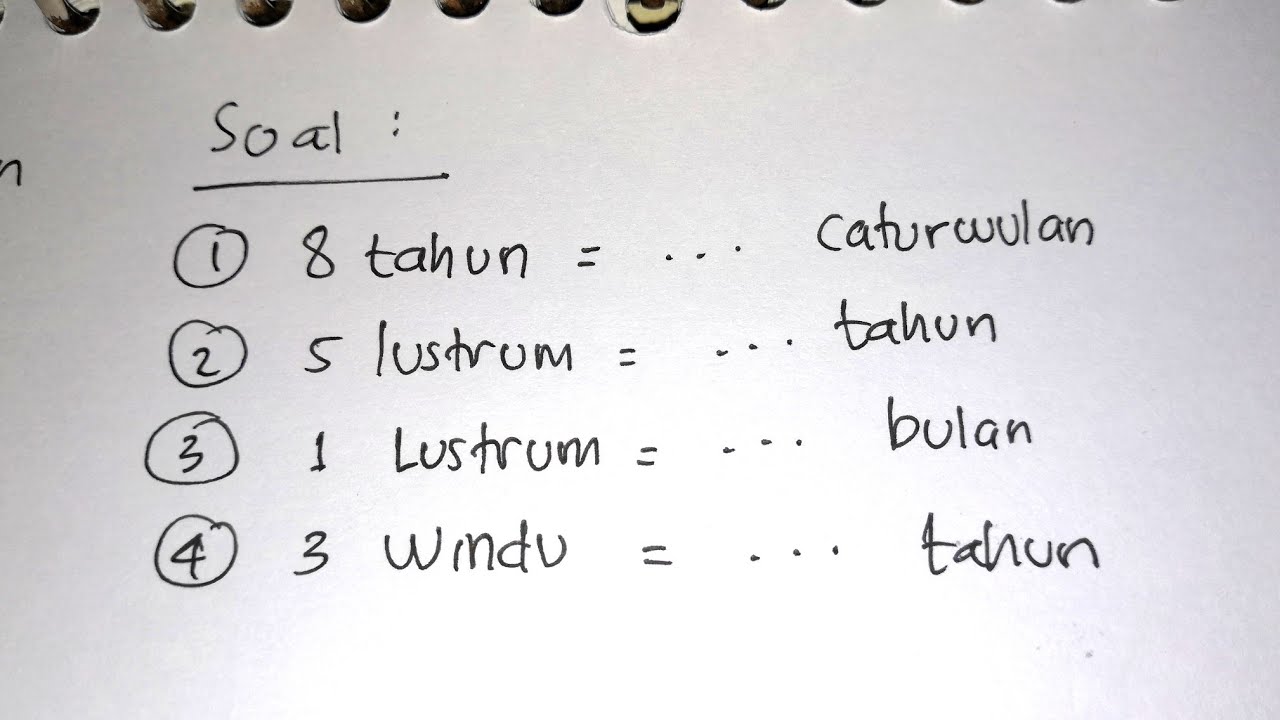 n
Soal :
① 8 tahun = ... caturwulan
② 5 lustrum = ... tahun
③ 1 Lustrum = ... bulan
④ 3 windu = ... tahun